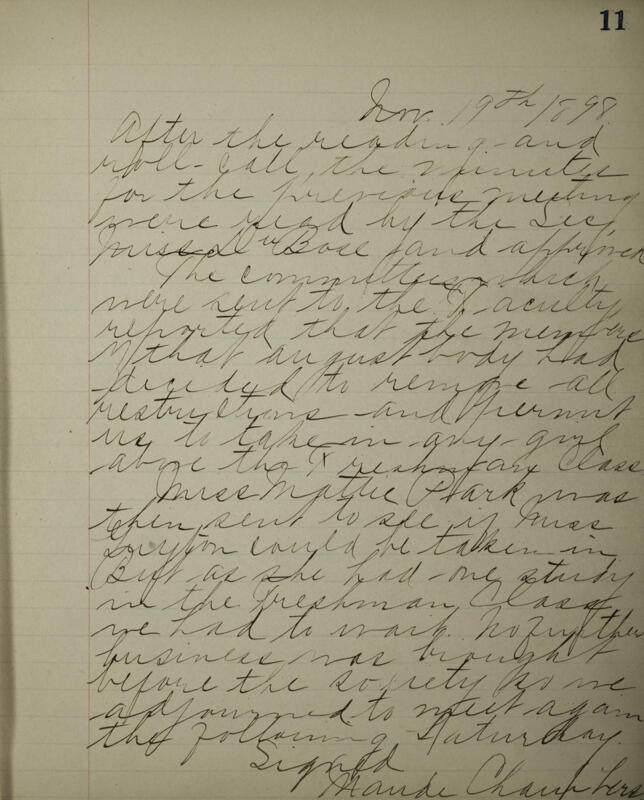 11
Nov. 19th 1898
After the reading and
roll-call the minutes
for the previous meeting
were read by the Sec,
Miss Du Bose and approved
The committee which
were sent to the Faculty
reported that the members
of that august body had
decided to remove all
restrictions and permit
us to take in any girl
above the Freshman Class
Miss Mattie Park was
then sent to see if Miss
Guyton could be taken in
But as she had one study
in the Freshman Class
we had to wait. No further
business was brought
before the society so we
adjourned to meet again
the following Saturday.
Signed
Maude Chambers